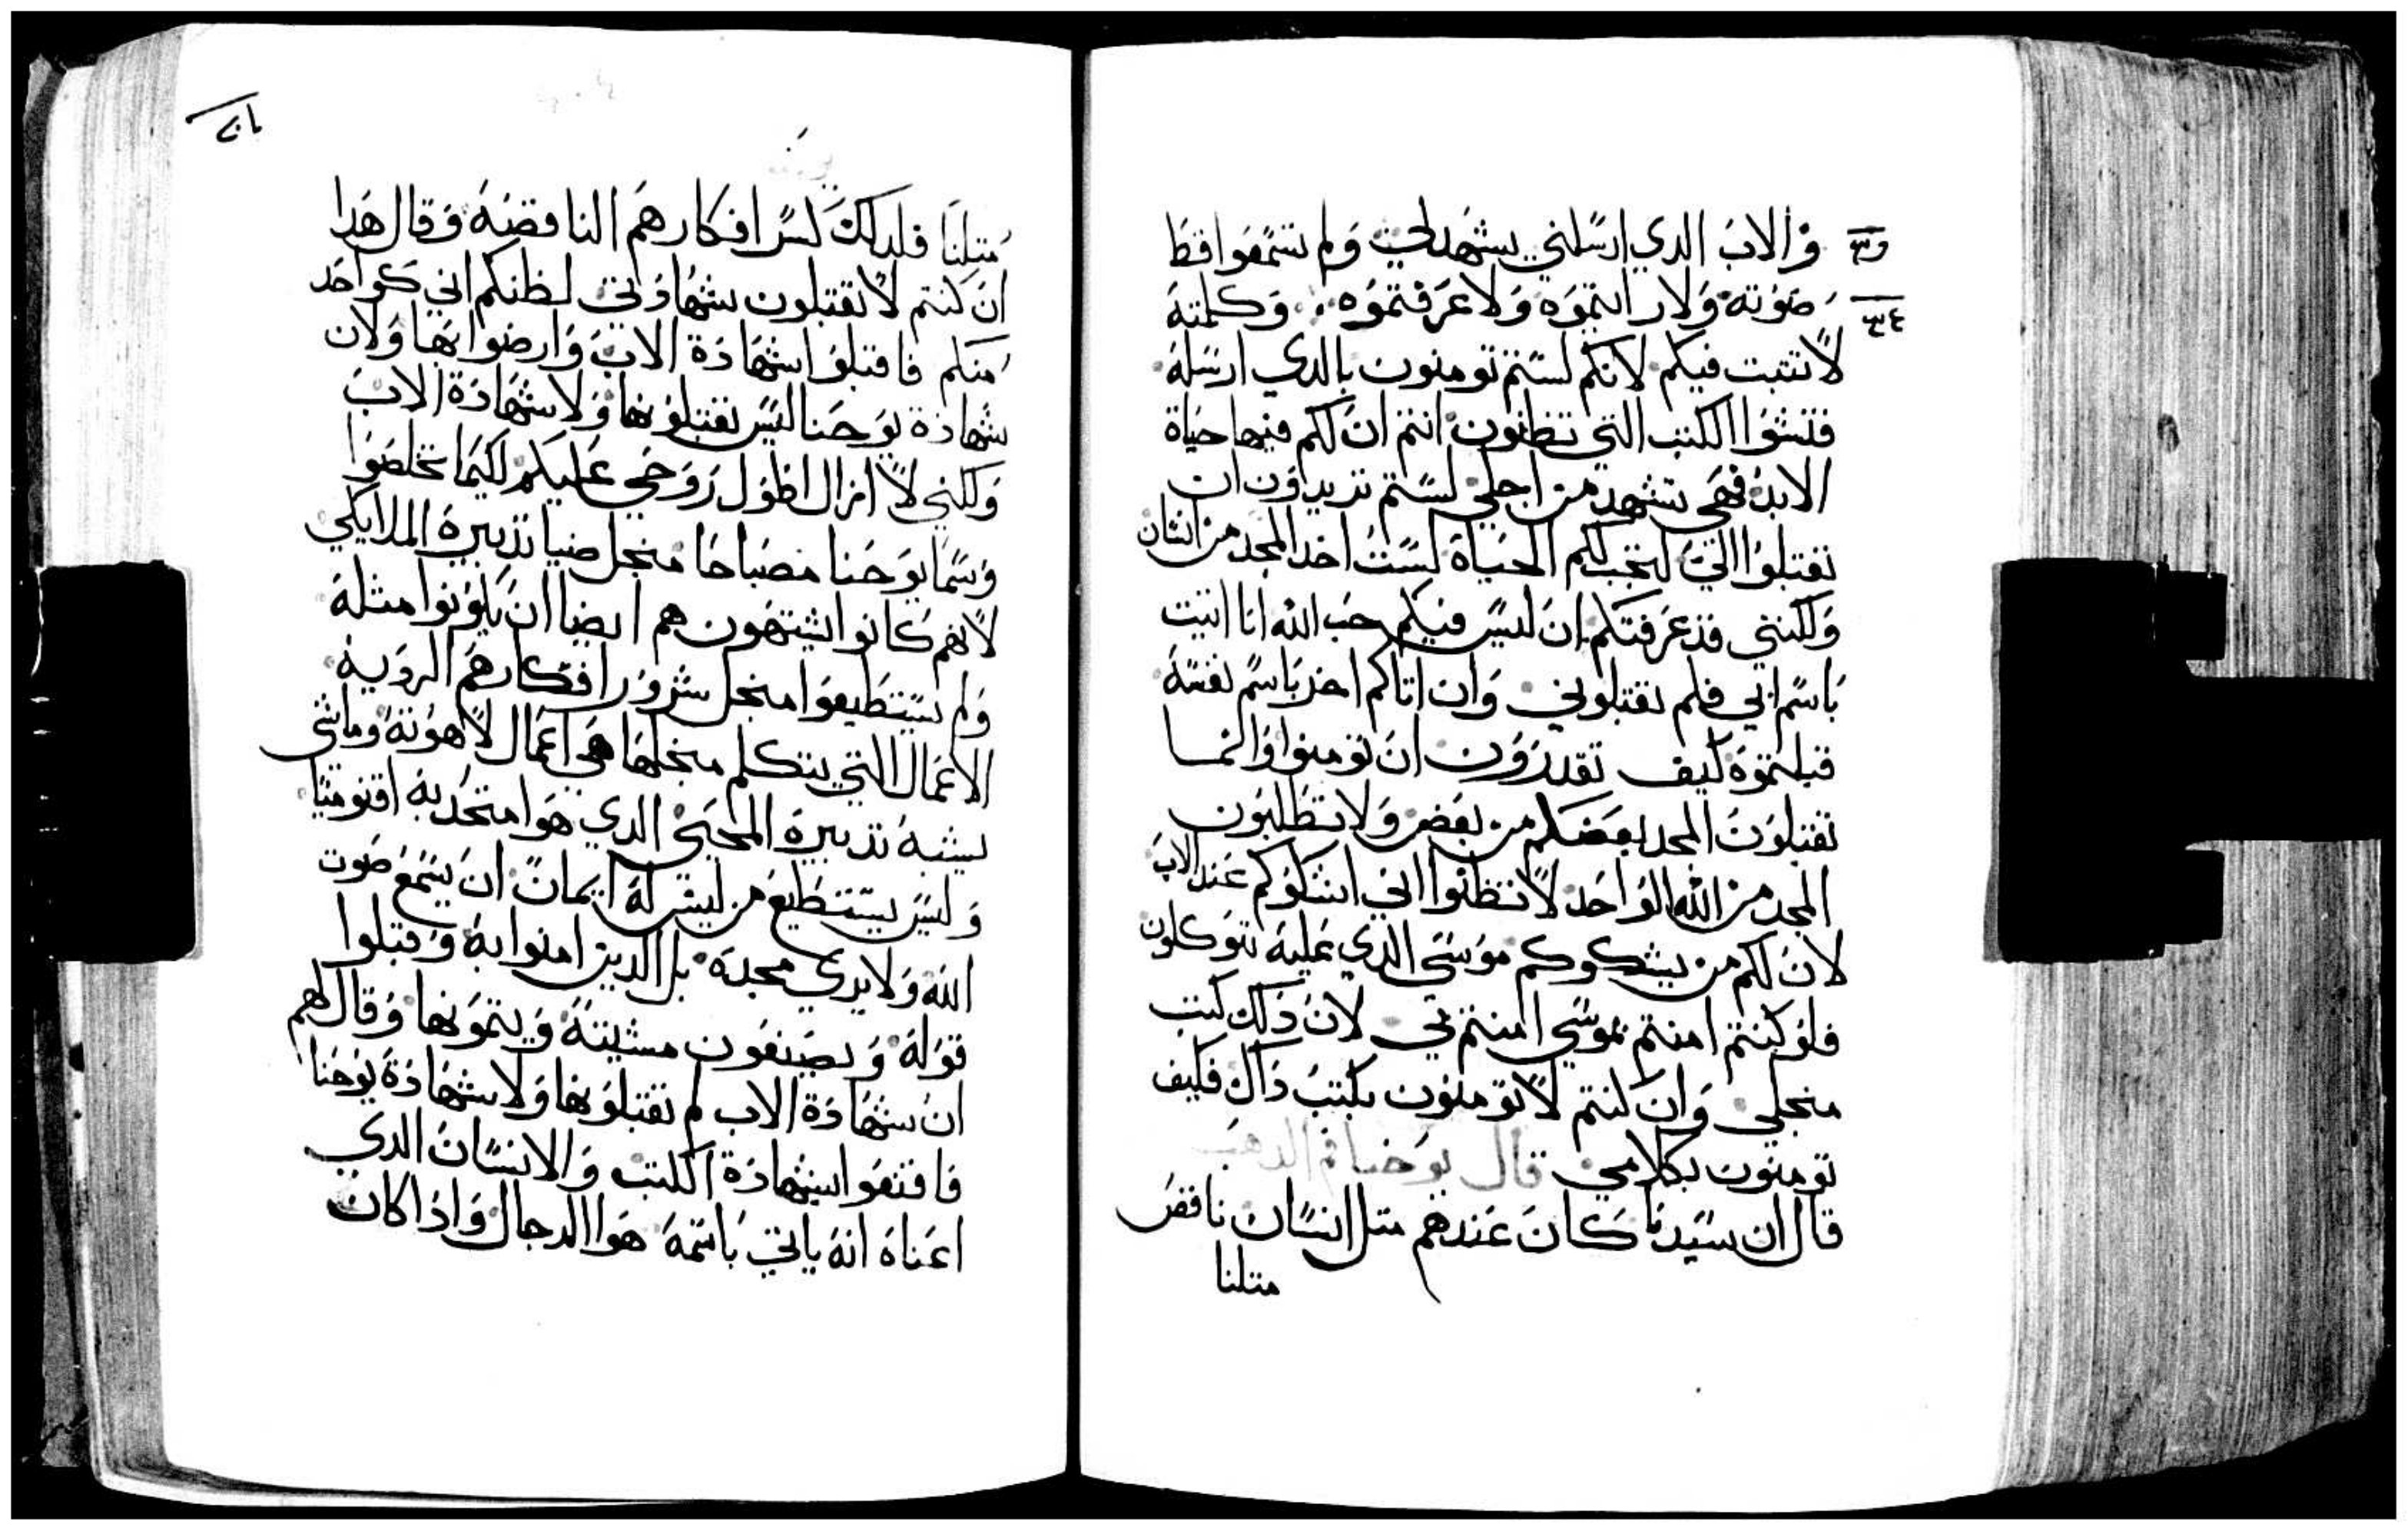 والاب الدي ارسلني يشهد لي ولم تسمعوا قط
صوته ولا رايتموه ولا عرفتموه وكلمته
٣٤
لا تثبت فيكم لانكم لستم تومنون بالدي ارسله
فتشوا الكتب التي تظنون انتم ان لكم فيها حياة
الابد فهي تشهد من اجلي لستم تريدون ان
تقبلوا الي لتجب لكم الحياة لست اخد المجد من انسان
ولكنني قد عرفتكم ان ليس فيكم حب الله انا اتيت
باسم ابي فلم تقبلوني وان اتاكم اخر باسم نفسه
قبلتموه كيف تقدرون ان تومنوا وانما
تقبلون المجد بعضكم من بعض ولا تطلبون
المجد من الله الواحد لا تظنوا اني اشكوكم عند الاب
لان لكم من يشكوكم موسى الدي عليه تتوكلون
فلو كنتم امنتم بموسي امنتم بي لان داك كتب
منجلي وان كنتم لا تومنون بكتب داك فكيف
تومنون بكلامي قال يوحنا فم الدهب
قال ان سيدنا كان عندهم متل انسان ناقص
متلنا
متلنا فلدلك لس افكارهم الناقصه وقال هدا
ان كنتم لا تقتبلون شهادتي لظنكم اني كواحد
منكم فاقتبلوا شهادة الاب وارضوا بها ولان
شهادة يوحنا ليس تقتبلونها ولا شهادة الاب
ولكني لا ازال اطول روحي عليكم لكيما تخلصوا
وسما يوحنا مصباحا منجل ضيا تدبيره الملايكي
لانهم كانوا يشتهون هم ايضا ان يكونوا مثله
ولم يستطيعوا منجل شرور افكارهم الرديه
الاعمال التي يتكلم منجلها هي اعمال لاهوته وماشي
يشبه تدبيره المحيي الدي هوا متحد به اقنوميا
وليس يستطيع من ليس له ايمان ان يسمع صوت
الله ولا يري مجده بل الدين امنوا به وقبلوا
قوله ويصنعون مشيته ويتمونها وقال لهم
ان شهادة الاب لم تقتبلونها ولا شهادة يوحنا
فاقنعوا بشهادة الكتب والانسان الدي
اعناه انه ياتي باسمه هوا الدجال وادا كان